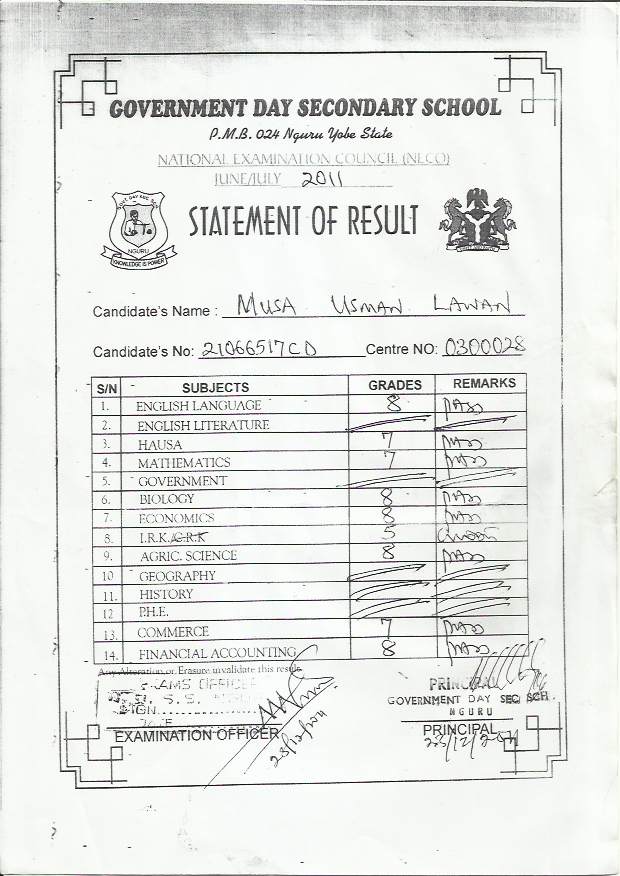 GOVERNMENT DAY SECONDARY SCHOOL
P.M.B. 024 Nguru Yobe State
NATIONAL EXAMINATION COUNCIL (NECO)
JUNE/JULY 2011
GOVT. DAY SEC. SCH.
NGURU
KNOWLEDGE IS POWER
STATEMENT OF RESULT
Candidate's Name : MUSA USMAN LAWAN
Candidate's No: 21066517CD Centre NO: 0300028
S/N SUBJECTS GRADES REMARKS
1. ENGLISH LANGUAGE 8 PASS
2. ENGLISH LITERATURE
3. HAUSA 7 PASS
4. MATHEMATICS 7 PASS
5. GOVERNMENT
6. BIOLOGY 8 PASS
7. ECONOMICS 8 PASS
8. I.R.K./C.R.K 5
9. AGRIC. SCIENCE 8 PASS
10 GEOGRAPHY
11. HISTORY
12 P.H.E.
13. COMMERCE 7 PASS
14. FINANCIAL ACCOUNTING 8 PASS
Any Alteration or Erasure invalidate this result.
SIGN
DATE
EXAMINATION OFFICER
23/12/2011
PRINCIPAL
GOVERNMENT DAY SEC SCH.
NGURU
PRINCIPAL
23/12/2011